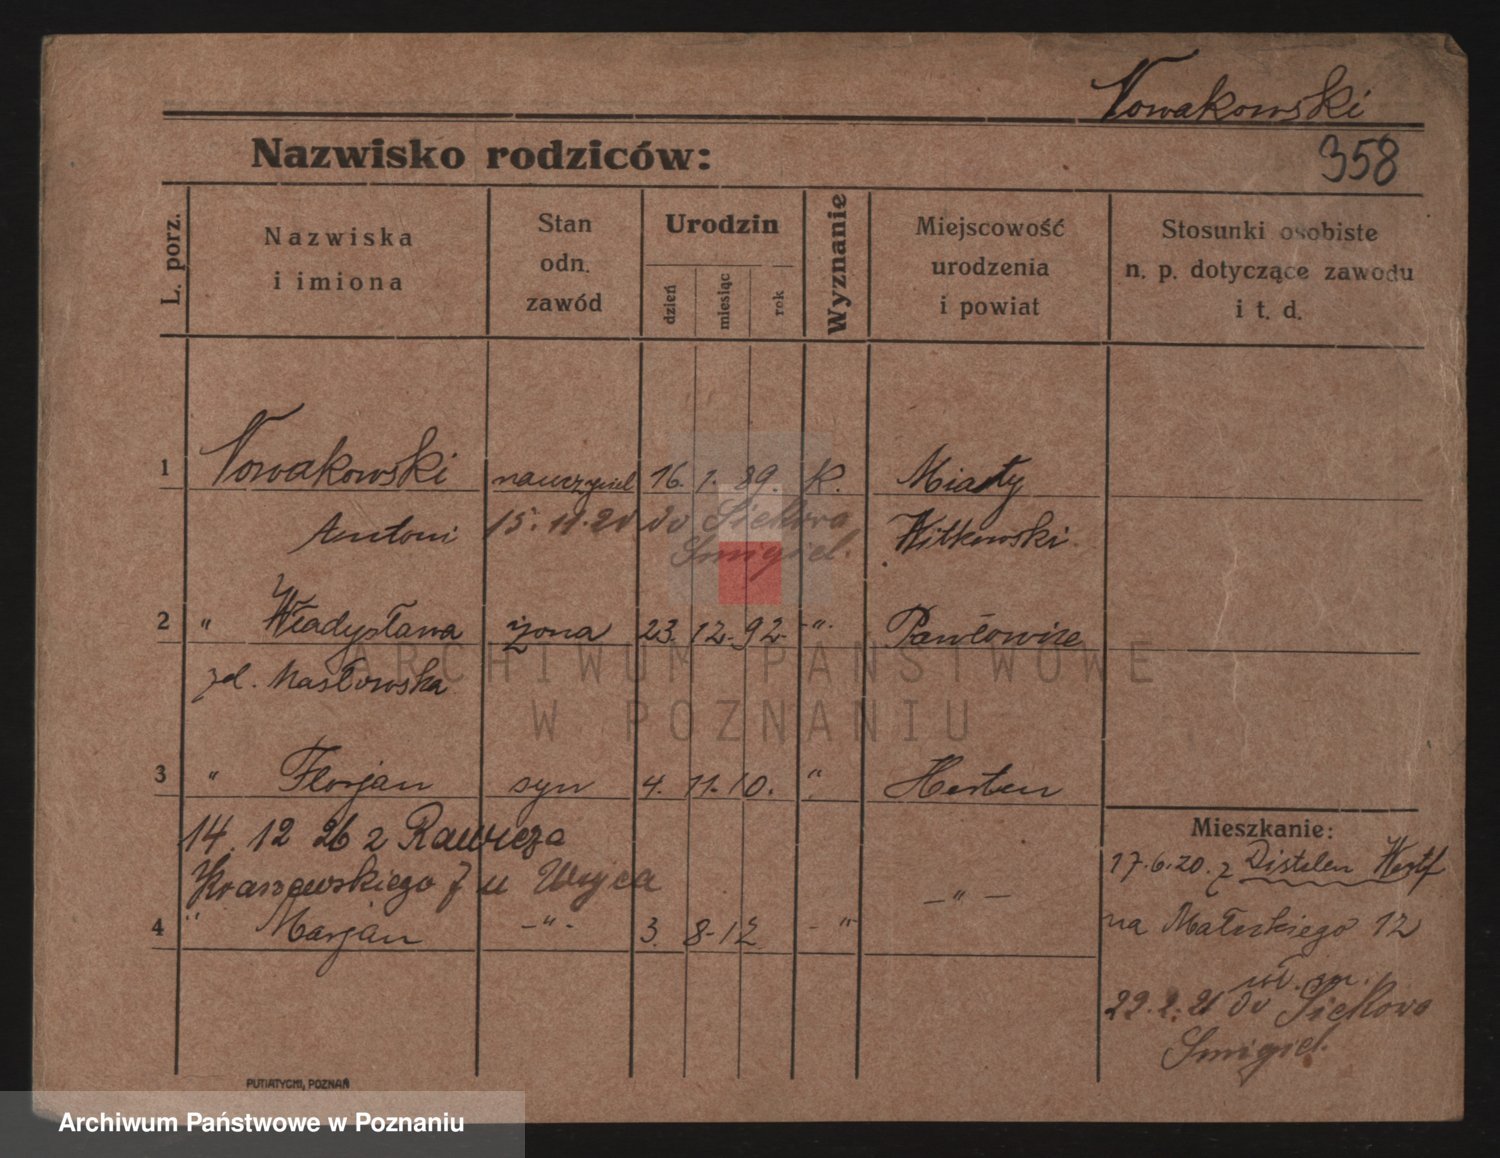 Nowakowski
358
Nazwisko rodziców:
L. porz.
Nazwiska
i imiona
Stan
odn.
zawód
Urodzin
dzień
miesiąc
rok
Wyznanie
Miejscowość
urodzenia
i powiat
Stosunki osobiste
n. p. dotyczące zawodu
i t. d.
1 Nowakowski nauczyciel 16. 1. 89. K. Miaty
Antoni 15. 11. 20 do Siekowo Witkowski.
Smigiel.
2 " Władysława żona 23. 12. 92. -"- Pawłowice
zd. Masłowska
3 " Florjan syn 4. 11. 10. " Herten
14. 12 26 z Rawicza
Kraszewskiego 7 u Wujca
4 " Marjan -"- 3. 8. 12 -"- -"-
Mieszkanie:
17.6.20. z Distelen Westf
na Małeckiego 12
22. 2. 21 do Siekowo
Smigiel.
PUTIATYCKI, POZNAŃ
ARCHIWUM PAŃSTWOWE
W POZNANIU
Archiwum Państwowe w Poznaniu